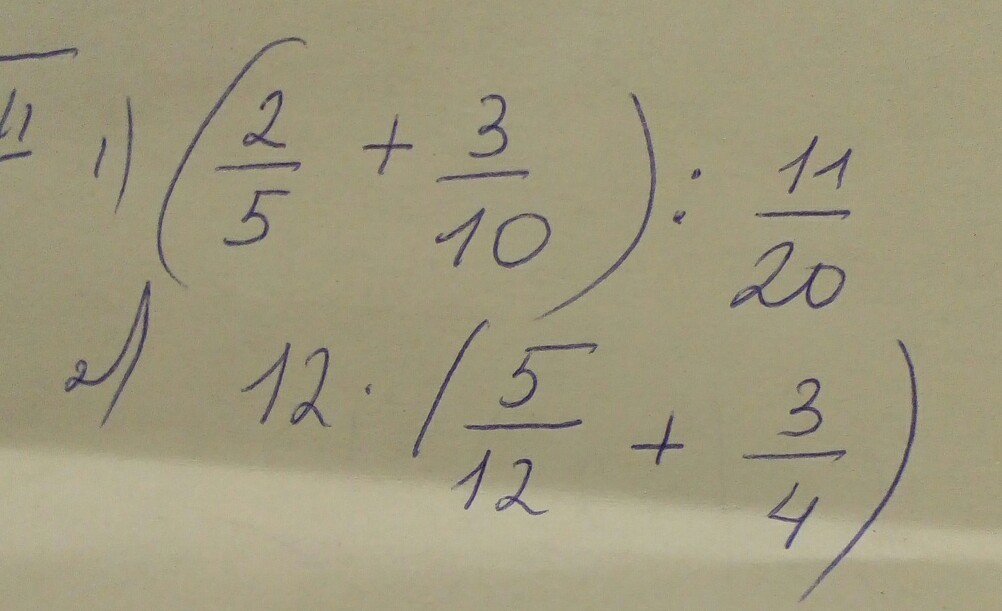 II 1) (2/5 + 3/10) : 11/20
2) 12 · (5/12 + 3/4)